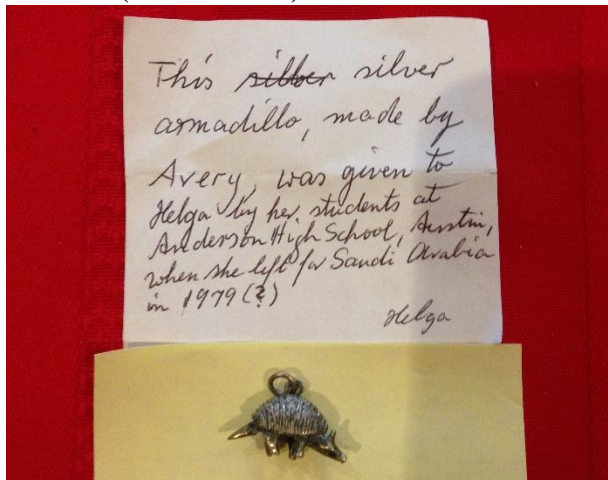 This silber silver
armadillo, made by
Avery, was given to
Helga by her students at
Anderson High School, Austin,
when she left for Saudi Arabia
in 1979 (?)
Helga